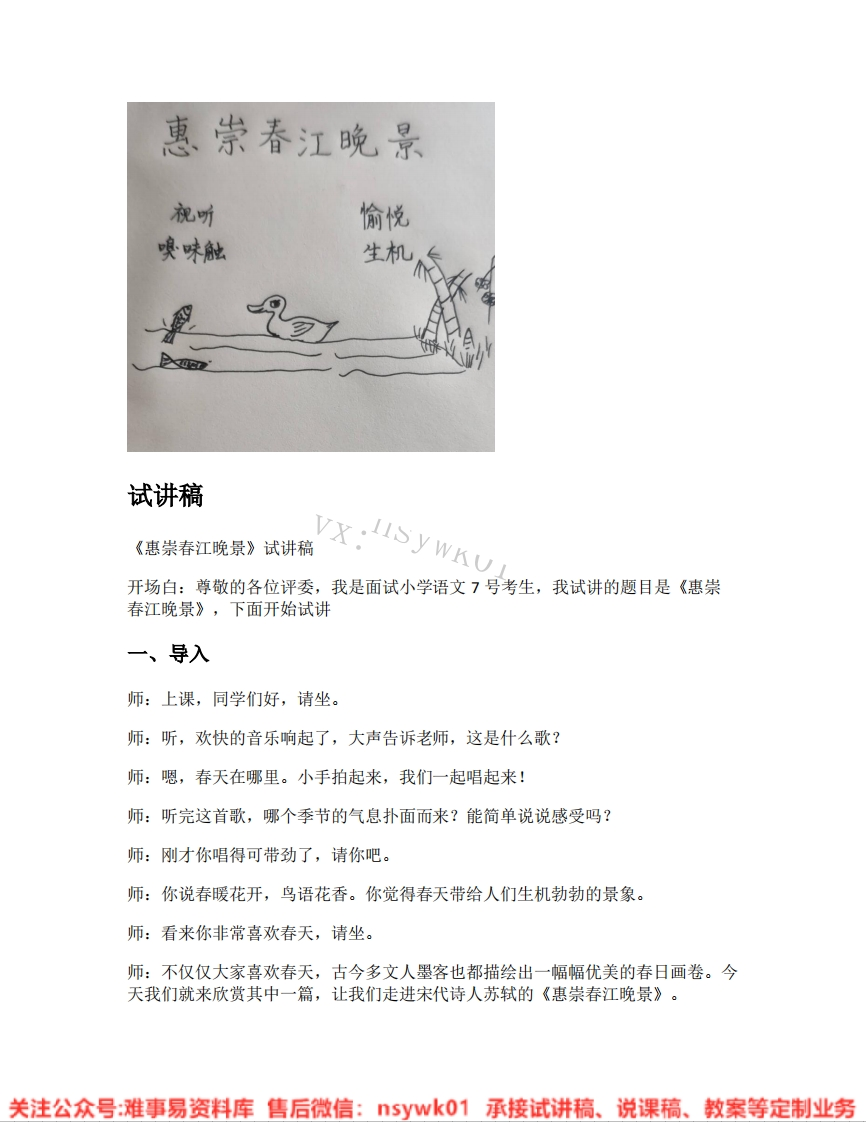 惠崇春江晚景
视听 愉悦
嗅味触 生机
试讲稿
VX:nsywk01
《惠崇春江晚景》试讲稿
开场白：尊敬的各位评委，我是面试小学语文 7 号考生，我试讲的题目是《惠崇
春江晚景》，下面开始试讲
一、导入
师：上课，同学们好，请坐。
师：听，欢快的音乐响起了，大声告诉老师，这是什么歌？
师：嗯，春天在哪里。小手拍起来，我们一起唱起来！
师：听完这首歌，哪个季节的气息扑面而来？能简单说说感受吗？
师：刚才你唱得可带劲了，请你吧。
师：你说春暖花开，鸟语花香。你觉得春天带给人们生机勃勃的景象。
师：看来你非常喜欢春天，请坐。
师：不仅仅大家喜欢春天，古今多文人墨客也都描绘出一幅幅优美的春日画卷。今
天我们就来欣赏其中一篇，让我们走进宋代诗人苏轼的《惠崇春江晚景》。
关注公众号:难事易资料库 售后微信：nsywk01 承接试讲稿、说课稿、教案等定制业务